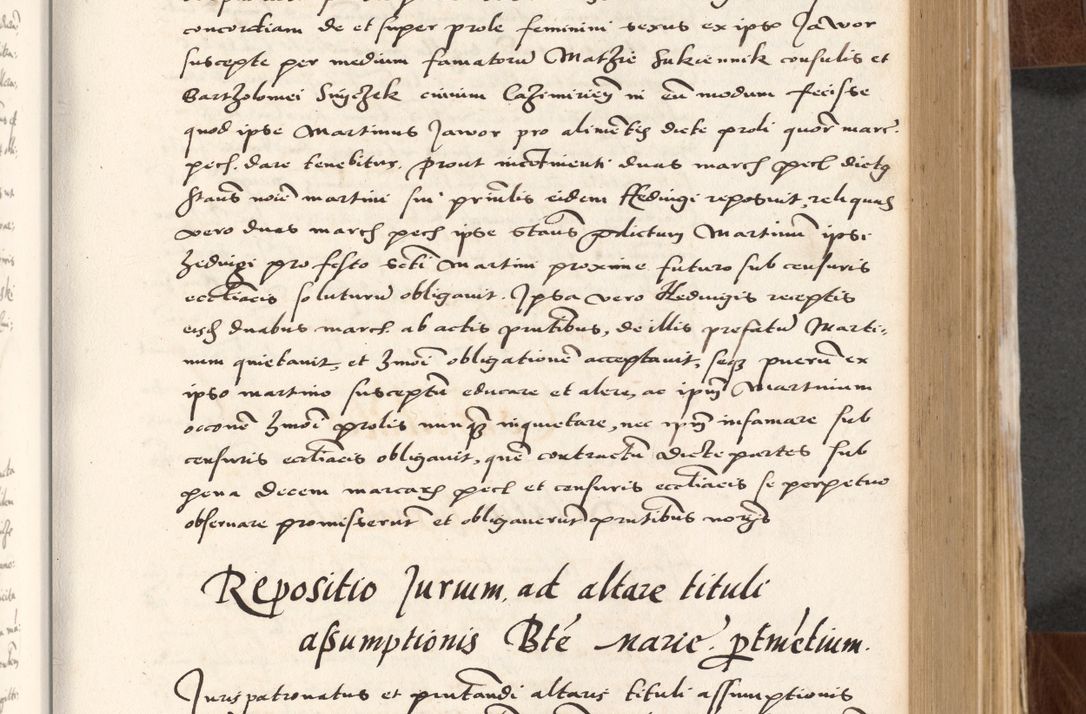 concordiam de et super prole feminini sexus ex ipso Jawor
suscepte per medium famatorū Mathie Sukiennik consulis et
Barthólomei Singhek civium Cazimirieñ in eū modum fecisse
quod ipse Martinus Jawor pro alimentis dicte proli quor marc.
pecł. dare tenebitur. Prout incōtinenti duas march pecł dictꝫ
Staūs noīe martini sui prīnlis eidem Hedwigi reposuit, reliquas
vero duas march pecł ipse Staūs pdictum Martinū ipsi
Hedwigi pro festo Scti Martini proxime futuro sub censuris
eccłiacis soluturū obligavit. Ipsa vero Hedwigis receptis
eisd duabus march. ab actis pntibus, de illis prefatū Marti-
num quietavit, et hmōi obligationē acceptavit, seqꝫ puerū ex
ipso martino susceptū educare et alere, ac ipm Martinum
occōne hmōi prolis nunqꝫ inquietare, nec ipm infamare sub
censuris eccłiacis obligavit, quē contractū dicte partes sub
pena decem marcarum pecł et censuris eccłiacis se perpetuo
observare promisserunt et obligaverunt pntibus
Repositio Jurium, ad altare tituli
assumptionis Bte Marie. ptinētium.
Juris patronatus et pntandi altaris tituli assumptionis